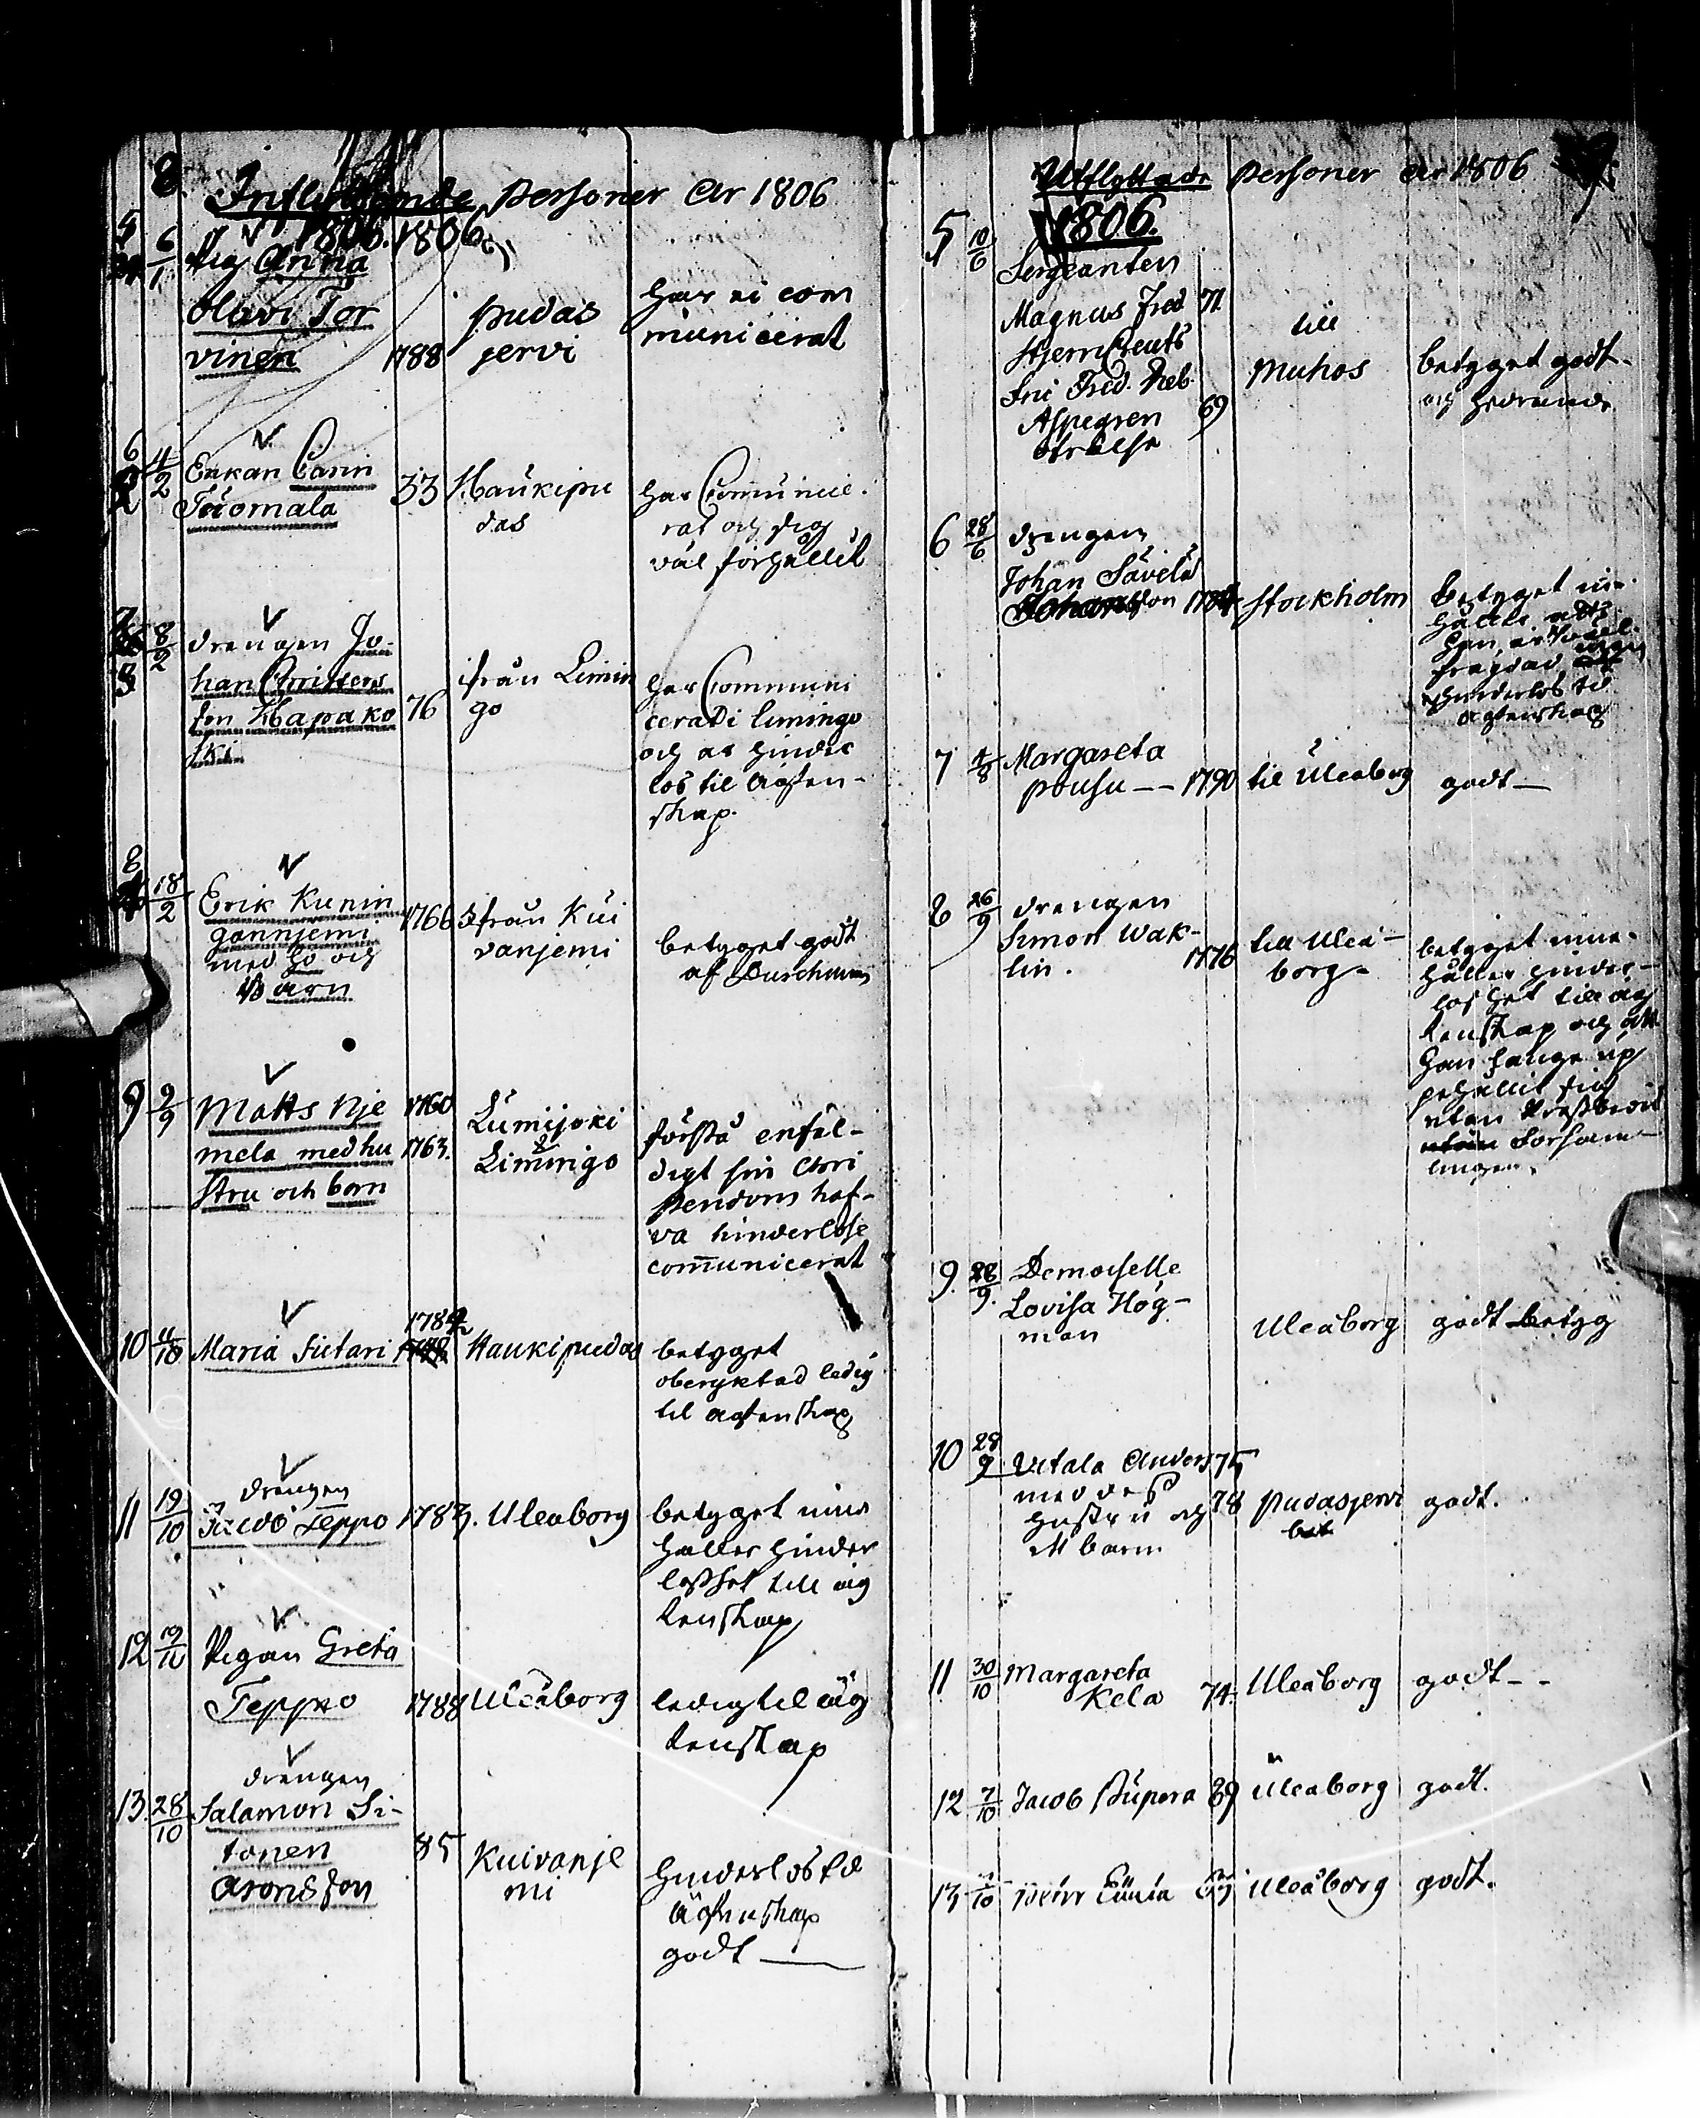 8.
Inflyttande personer år 1806
1806. 1806
5 6/1 Pig Anna
Olavi Tor
vinen 1788 pudas
jervi har ei com
municerat
6 4/2 Enkan Carin
Tuomala 33 Haukipu
das har Communic.
rat och sig
väl förhållit
7 8/2 drengen Jo-
han Christers
son Hapako
ski 76 ifrån Limin
go har Communi
cerat i limingo
och är hinder
lös til ägten-
skap.
8 18/2 Erik Kunin
gannjemi
med hu och
Barn 1766 ifrån Kui
vanjemi betyget godt
af Durchman
9 2/9 Matts Nje
mela med hu
stru och barn 1760
1763. Lumijoki
& Limingo förstå enfal-
digt sin Chri
stendom haf-
va hinderlöse
communicerat
10 4/10 Maria Siitari 1784 Haukipudas betyget
oberyktad ledig
til ägtenskap
11 19/10 drengen
Jacob Teppo 1783. Uleaborg betyget inne
håller hinder
löshet till äg
tenskap
12 19/10 Pigan Greta
Teppo 1788 Uleåborg ledig til äg
tenskap
13. 28/10 drengen
Salamon Si-
tonen
Aronsson 85 Kuivanje
mi hinderlös til
ägtenskap
godt —
Utflyttade personer år 1806
1806.
5 10/6 Sergeanten
Magnus Fred 71.
Stjerncreuts
Fru Fred. Heb.
Aspegren 69
till
Muhos betyget godt
och hedrande
6 28/6 drengen
Johan Sävelä
Johansson Stockholm betyget in-
håller att
han är
frägdad
hinderlös til
ägtenskap
7 4/8 Margareta
pousu — — 1790 til Uleaborg godt —
8 26/9 drengen
Simon Wak-
lin. 1776 till Uleå-
borg. betyget inne-
håller hinder-
löshet till äg
tenskap och att
han länge up
pehållit sig
utan
Forsam-
lingen.
9. 28/9. Demoiselle
Lovisa Hög-
man Uleåborg godt betyg
10 28/9 Uitala Anders 75
med dess
hustru och 78
ett barn pudasjervi godt.
11 30/10 Margareta
Kela 74. Uleåborg godt - -
12 7/10 Jacob Süpera 89 Uleaborg godt.
13 Uleåborg godt.